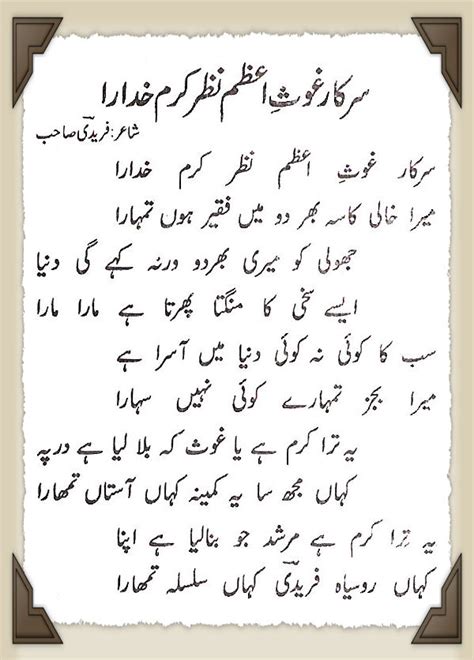 سرکار غوثِ اعظم نظر کرم خدارا
شاعر: فریدی صاحب
سرکار غوثِ اعظم نظر کرم خدارا
میرا خالی کاسہ بھر دو میں فقیر ہوں تمہارا
جھولی کو میری بھردو ورنہ کہے گی دنیا
ایسے سخی کا منگتا پھرتا ہے مارا مارا
سب کا کوئی نہ کوئی دنیا میں آسرا ہے
میرا بجز تمہارے کوئی نہیں سہارا
یہ ترا کرم ہے یا غوث کہ بلا لیا ہے در پہ
کہاں مجھ سا یہ کمینہ کہاں آستاں تمھارا
یہ ترا کرم ہے مرشد جو بنالیا ہے اپنا
کہاں روسیاہ فریدی کہاں سلسلہ تمھارا